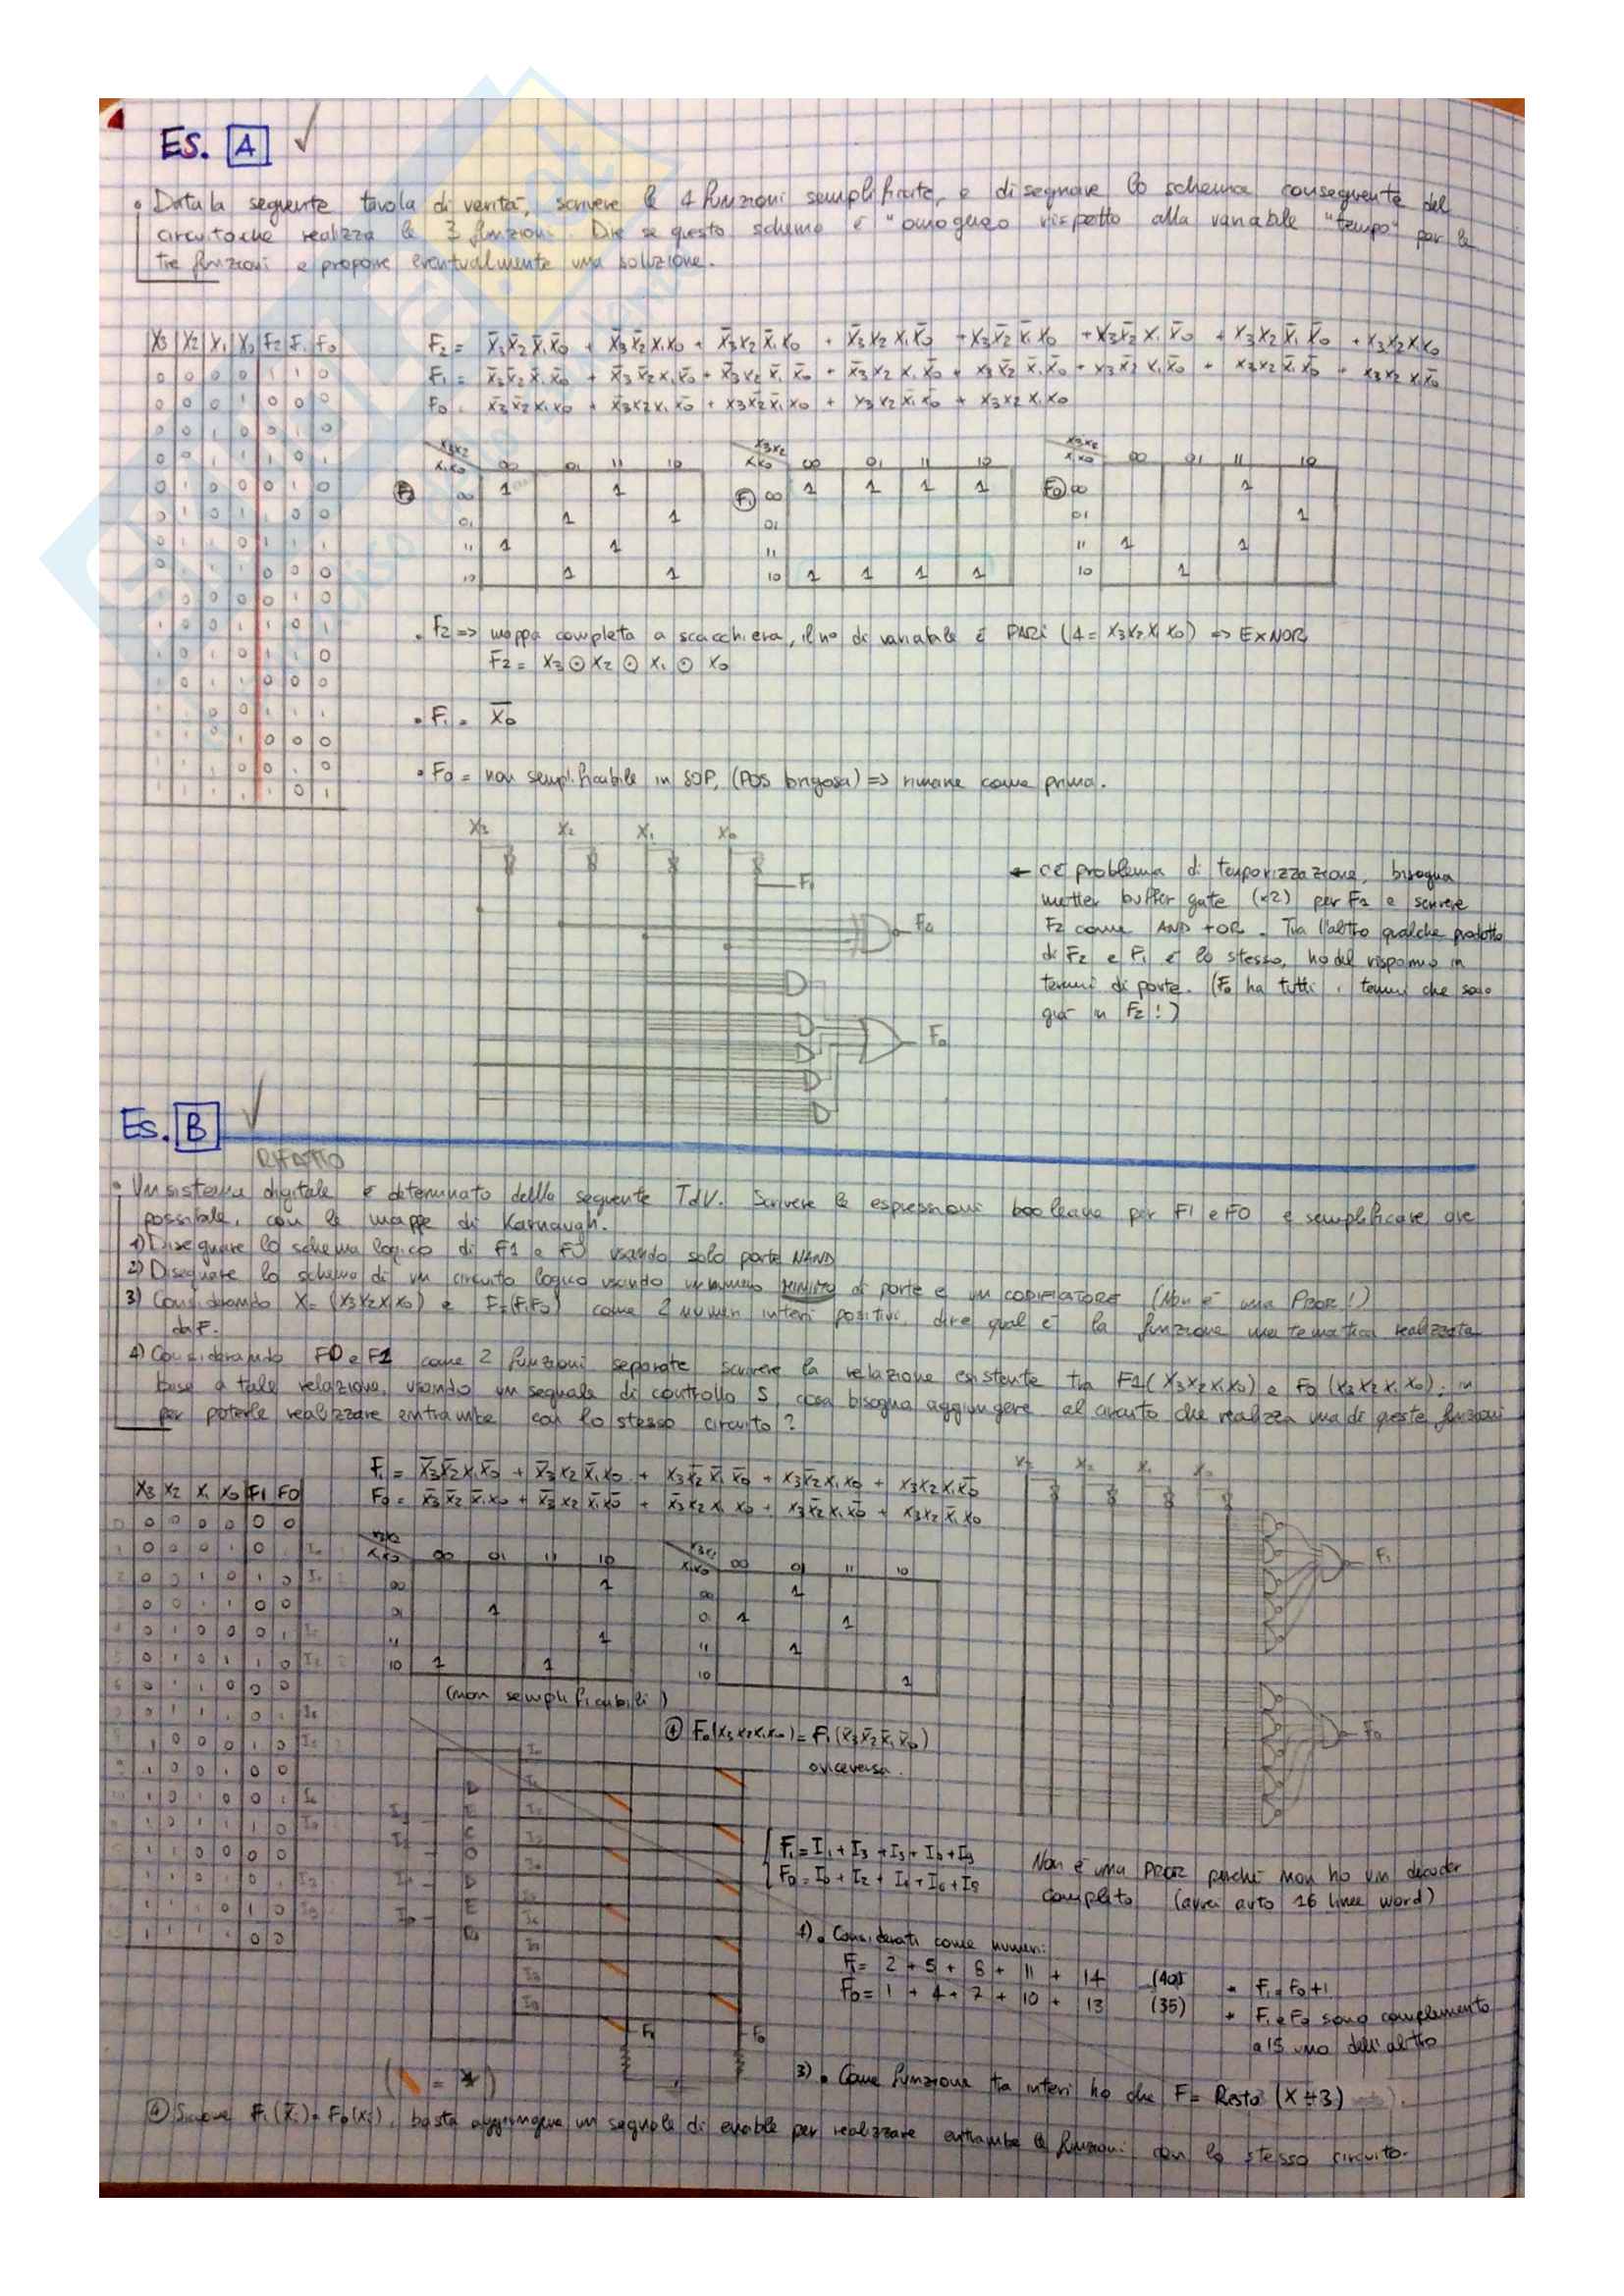 ES. A
• Data la seguente tavola di verità, scrivere le 4 funzioni semplificate, e disegnare lo schema conseguente del
circuito che realizza le 3 funzioni. Dire se questo schema è "omogeneo rispetto alla variabile "tempo" per le
tre funzioni e proporre eventualmente una soluzione.
X3 X2 X1 X0 F2 F1 F0
0 0 0 0 1 1 0
0 0 0 1 0 0 0
0 0 1 0 0 1 0
0 0 1 1 1 0 1
0 1 0 0 0 1 0
0 1 0 1 1 0 0
0 1 1 0 1 1 1
0 1 1 1 0 0 0
1 0 0 0 0 1 0
1 0 0 1 1 0 1
1 0 1 0 1 1 0
1 0 1 1 0 0 0
1 1 0 0 1 1 1
1 1 0 1 0 0 0
1 1 1 0 0 1 0
1 1 1 1 1 0 1
F2 = X̄3X̄2X̄1X̄0 + X̄3X̄2X1X0 + X̄3X2X̄1X0 + X̄3X2X1X̄0 + X3X̄2X̄1X0 + X3X̄2X1X̄0 + X3X2X̄1X̄0 + X3X2X1X0
F1 = X̄3X̄2X̄1X̄0 + X̄3X̄2X1X̄0 + X̄3X2X̄1X̄0 + X̄3X2X1X̄0 + X3X̄2X̄1X̄0 + X3X̄2X1X̄0 + X3X2X̄1X̄0 + X3X2X1X̄0
F0 = X̄3X̄2X1X0 + X̄3X2X1X̄0 + X3X̄2X̄1X0 + X3X2X̄1X̄0 + X3X2X1X0
X3X2 X3X2 X3X2
X1X0 00 01 11 10 X1X0 00 01 11 10 X1X0 00 01 11 10
F2 00 1 1 F1 00 1 1 1 1 F0 00 1
01 1 1 01 01 1
11 1 1 11 11 1 1
10 1 1 10 1 1 1 1 10 1
• F2 => mappa completa a scacchiera, il n° di variabile è PARI (4 = X3X2X1X0) => EXNOR
F2 = X3 ⊙ X2 ⊙ X1 ⊙ X0
• F1 = X̄0
• F0 = non semplificabile in SOP, (POS brigosa) => rimane come prima.
X3 X2 X1 X0
F1
F2
F0
← c'è problema di temporizzazione, bisogna
metter buffer gate (x2) per F1 e scrivere
F2 come AND + OR. Tra l'altro qualche prodotto
di F2 e F1 è lo stesso, ho del risparmio in
termini di porte. (F0 ha tutti i termini che sono
già in F2!)
Es. B
RIFATTO
• Un sistema digitale è determinato dalla seguente TdV. Scrivere le espressioni booleane per F1 e F0 e semplificare ove
possibile, con le mappe di Karnaugh.
1) Disegnare lo schema logico di F1 e F0 usando solo porte NAND
2) Disegnare lo schema di un circuito logico usando un numero MINIMO di porte e un CODIFICATORE (Non è una PROM!)
3) Considerando X = (X3X2X1X0) e F=(F1F0) come 2 numeri interi positivi, dire qual è la funzione matematica realizzata
da F.
4) Considerando F0 e F1 come 2 funzioni separate scrivere la relazione esistente tra F1(X3X2X1X0) e F0(X3X2X1X0); in
base a tale relazione, usando un segnale di controllo S, cosa bisogna aggiungere al circuito che realizza una di queste funzioni
per poterle realizzare entrambe con lo stesso circuito?
F1 = X̄3X̄2X1X̄0 + X̄3X2X̄1X0 + X3X̄2X̄1X̄0 + X3X̄2X1X0 + X3X2X1X̄0
F0 = X̄3X̄2X̄1X0 + X̄3X2X̄1X̄0 + X̄3X2X1X0 + X3X̄2X1X̄0 + X3X2X̄1X0
X3 X2 X1 X0 F1 F0
0 0 0 0 0 0
0 0 0 1 0 1
0 0 1 0 1 0
0 0 1 1 0 0
0 1 0 0 0 1
0 1 0 1 1 0
0 1 1 0 0 0
0 1 1 1 0 1
1 0 0 0 1 0
1 0 0 1 0 0
1 0 1 0 0 1
1 0 1 1 1 0
1 1 0 0 0 0
1 1 0 1 0 1
1 1 1 0 1 0
1 1 1 1 0 0
X1X0 00 01 11 10 X1X0 00 01 11 10
00 1 00 1
01 1 01 1 1
11 1 11 1
10 1 1 10 1
(non semplificabili)
④ F0(X3X2X1X0) = F1(X̄3X̄2X̄1X̄0)
o viceversa.
F1
F0
DECODER
F1 = I1 + I3 + I5 + I7 + I9
F0 = I0 + I2 + I4 + I6 + I8
Non è una PROM perché non ho un decoder
completo (avrei avuto 16 linee word)
4). Considerati come numeri:
F1 = 2 + 5 + 8 + 11 + 14 (40) * F1 = F0+1
F0 = 1 + 4 + 7 + 10 + 13 (35) * F1 e F0 sono complemento
a 15 uno dell'altro
F1 F0
3). Come funzione tra interi ho che F = Resto (X ÷ 3)
④ Siccome F1(X̄i) = F0(Xi), basta aggiungere un segnale di enable per realizzare entrambe le funzioni con lo stesso circuito.